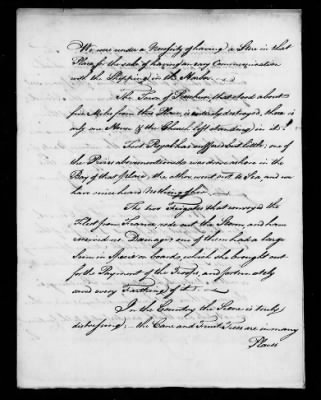 We were under a Necessity of having a Store in that
Place for the sake of having an easy Communication
with the Shipping in the Harbor.
The Town of that stood about
five Miles from this Place, is entirely destroyed, there is
only one House & the Church left standing in it.
Fort Royal has suffered but little; one of
the Prizes abovementioned was drove ashore in the
Bay of that place, the other went out to Sea, and we
have since heard Nothing of her.
The two Frigates that convoyed the
Fleet from France, rode out the Storm, and have
received no Damage; one of them had a large
Sum in Specie on board, which she brought out
for the Payment of the Troops, and fortunately
saved every Farthing of it.
In the Country the Scene is truly
distressing; the Cane and Fruit Trees are in many
Places